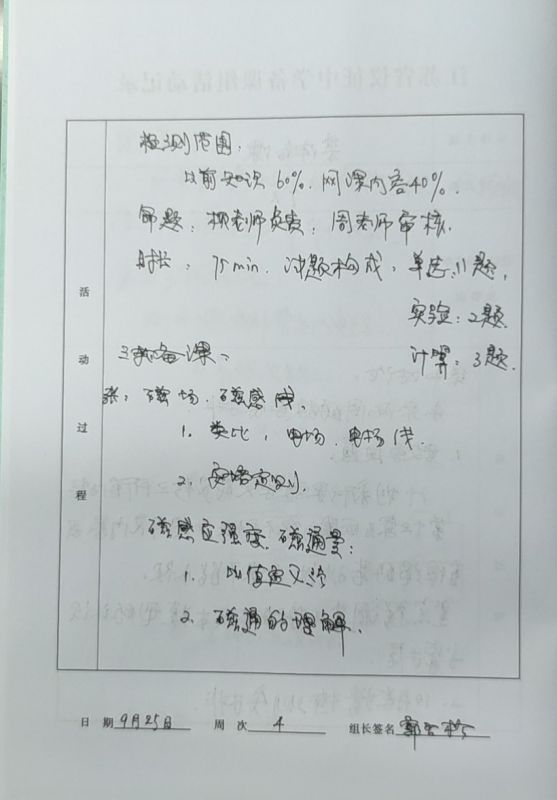 检测范围：
以前知识 60%. 网课内容40%.
命题：柳老师负责；周老师审核.
时长：75min. 试题构成：单选:11题,
实验：2题
计算：3题.
活动过程
三、集体备课：
张：磁场、磁感线.
1. 类比，电场、电场线.
2. 安培定则.
磁感应强度、磁通量：
1. 比值定义法
2. 磁通的理解.
日 期 9月25日 周 次 4 组长签名